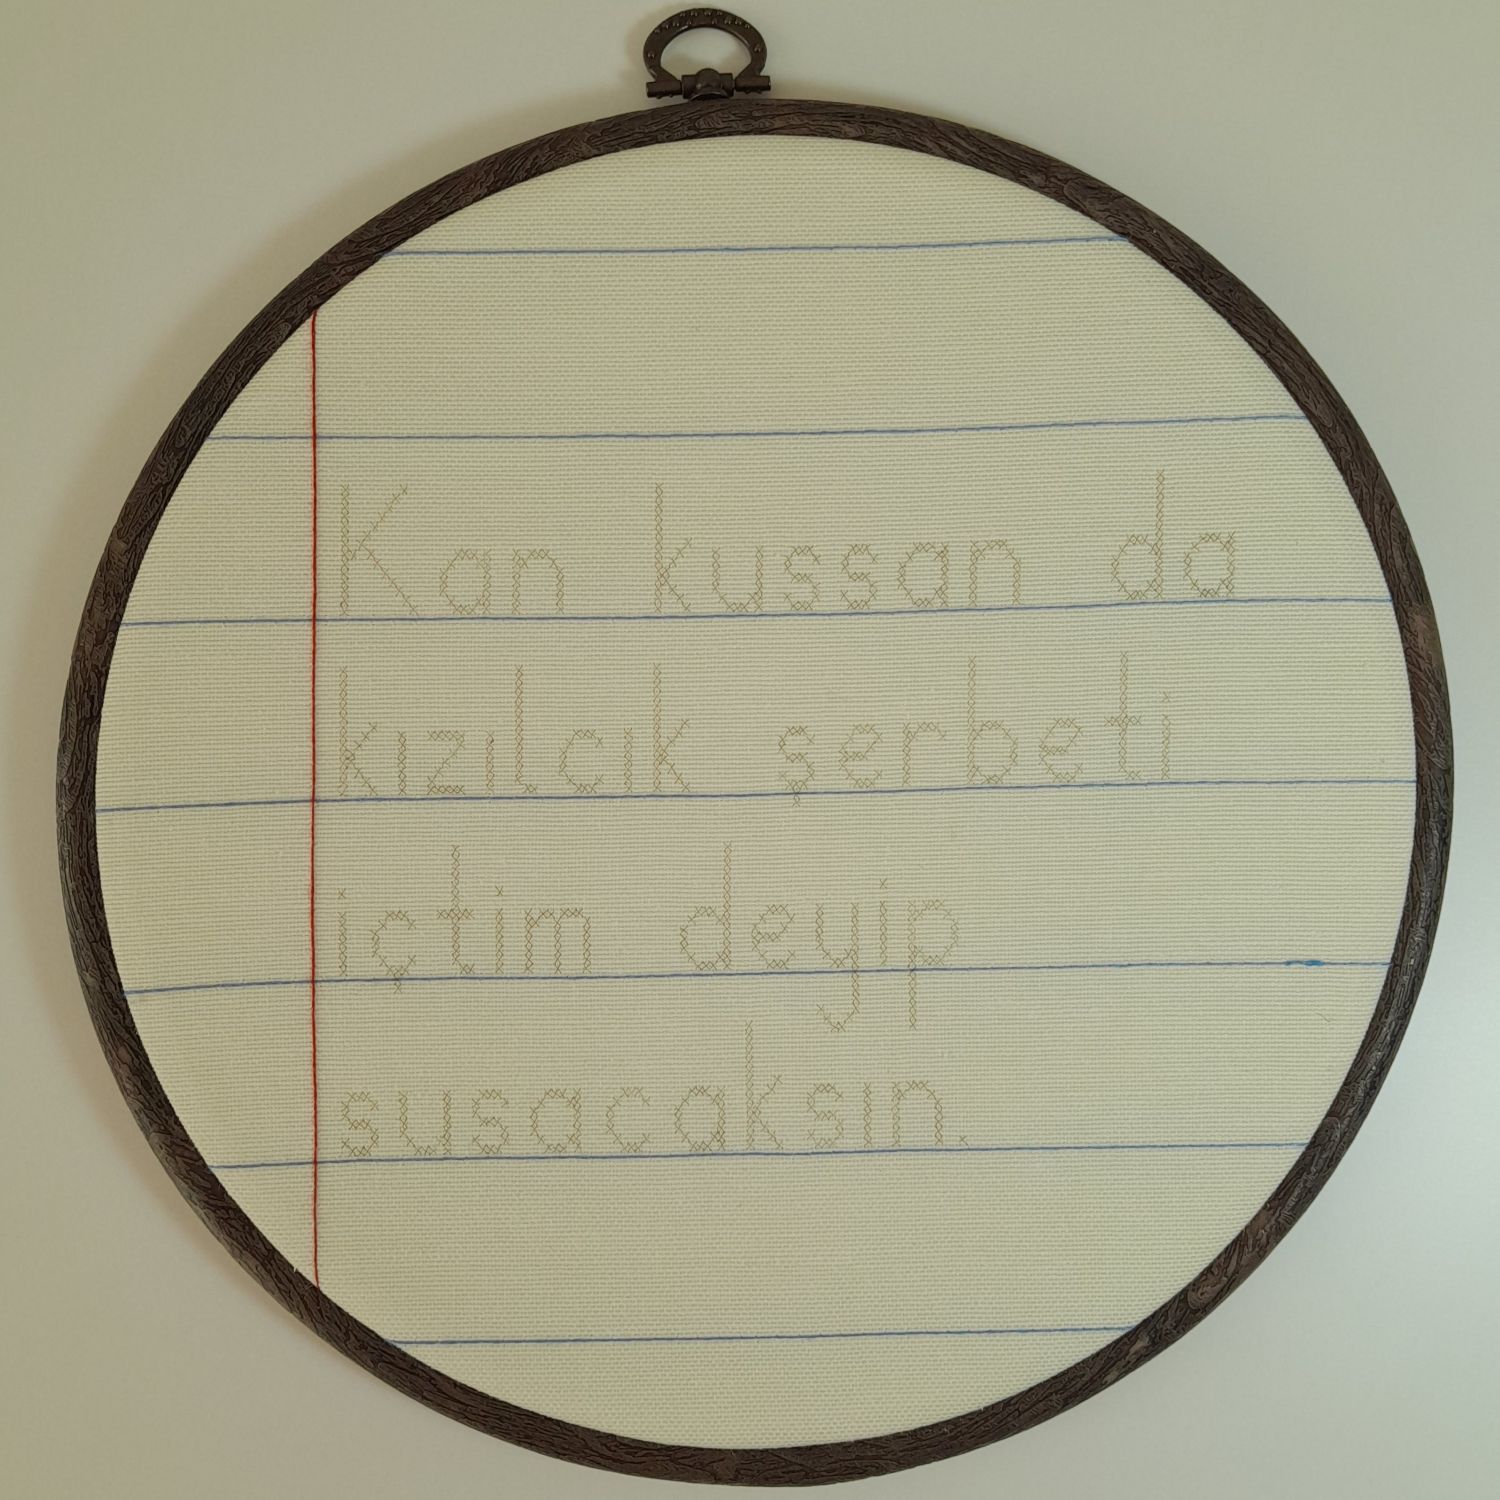 Kan kussan da
kızılcık şerbeti
içtim deyip
susacaksın.